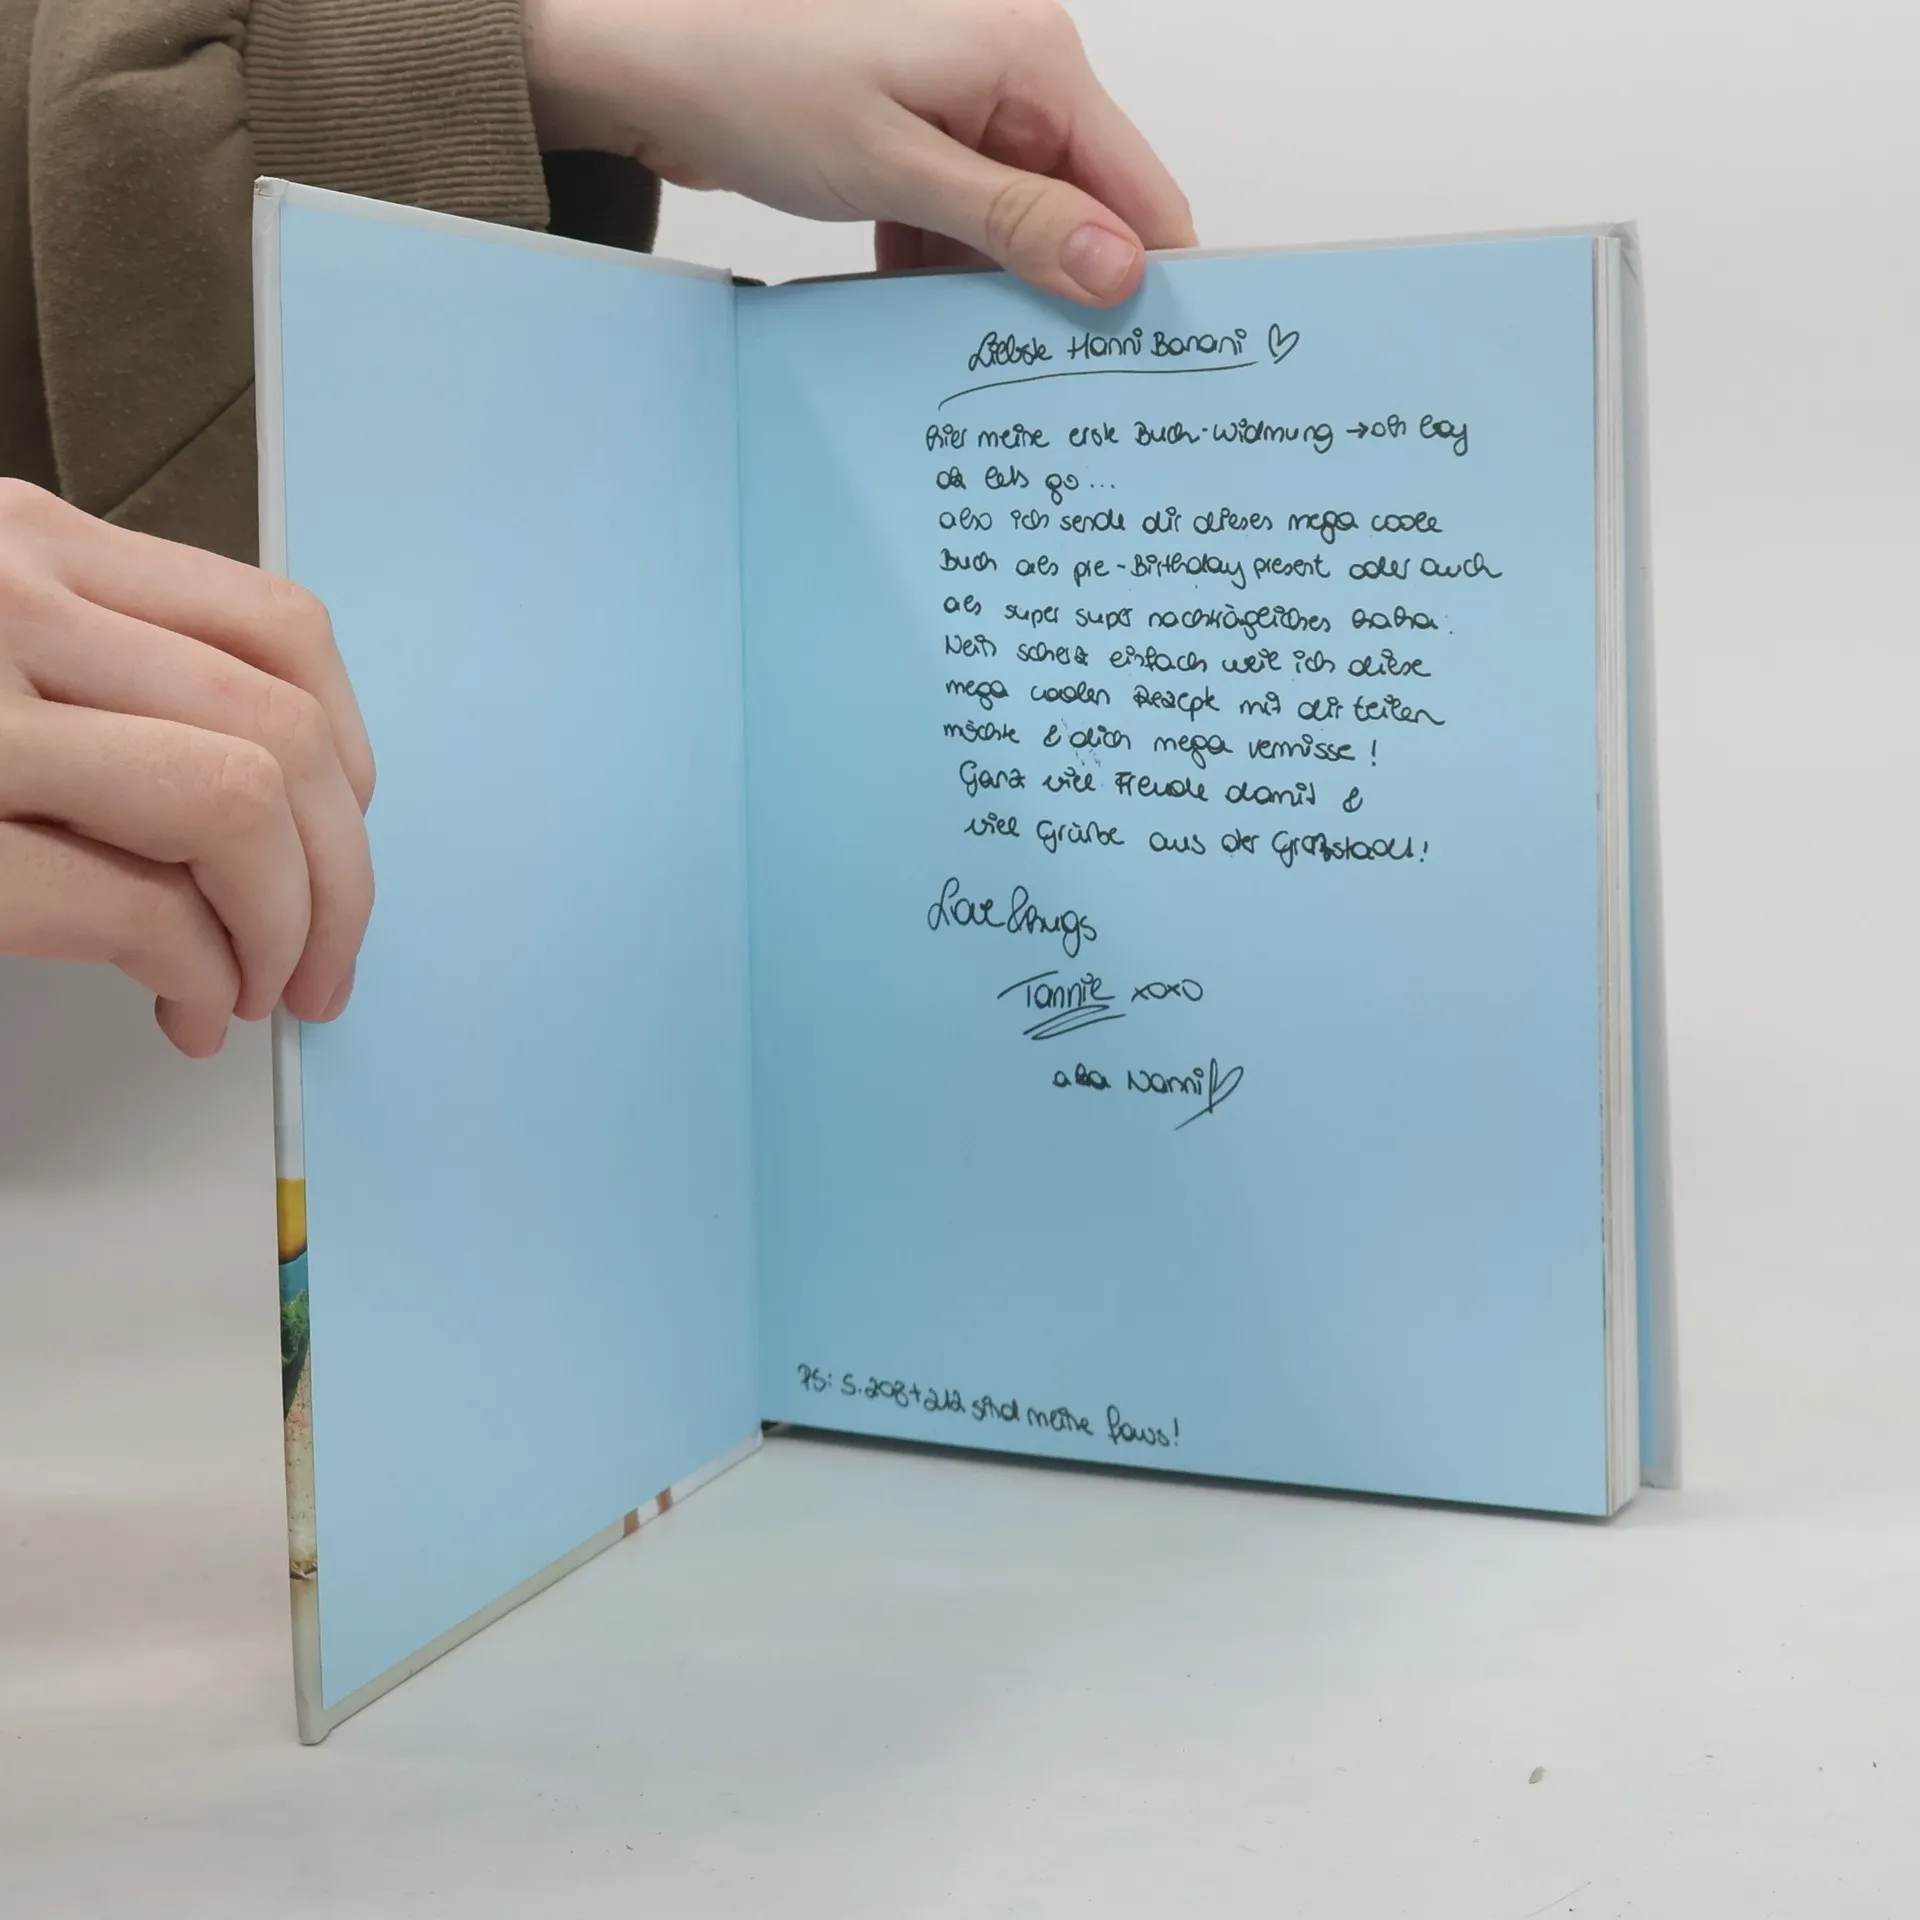 Liebste Hanni Banani ♡
hier meine erste Buch-Widmung → oh boy
ok lets go...
also ich sende dir dieses mega coole
Buch als pre-Birthday present oder auch
als super super nachträgliches haha.
Nein scherz einfach weil ich diese
mega coolen Rezepte mit dir teilen
möchte & dich mega vermisse!
Ganz viel Freude damit &
viel Grüße aus der Großstadt!
Love & hugs
Tannie xoxo
aka Nanni ♡
PS: S.208+212 sind meine favs!